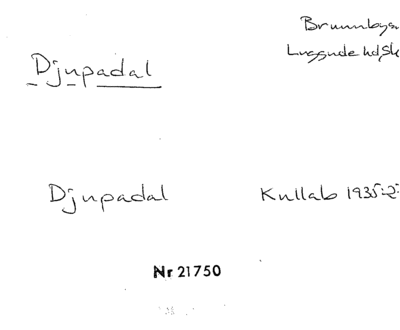 Djupadal
Luggude hd Sk
Djupadal
Kullab 1935:2
Nr 21750